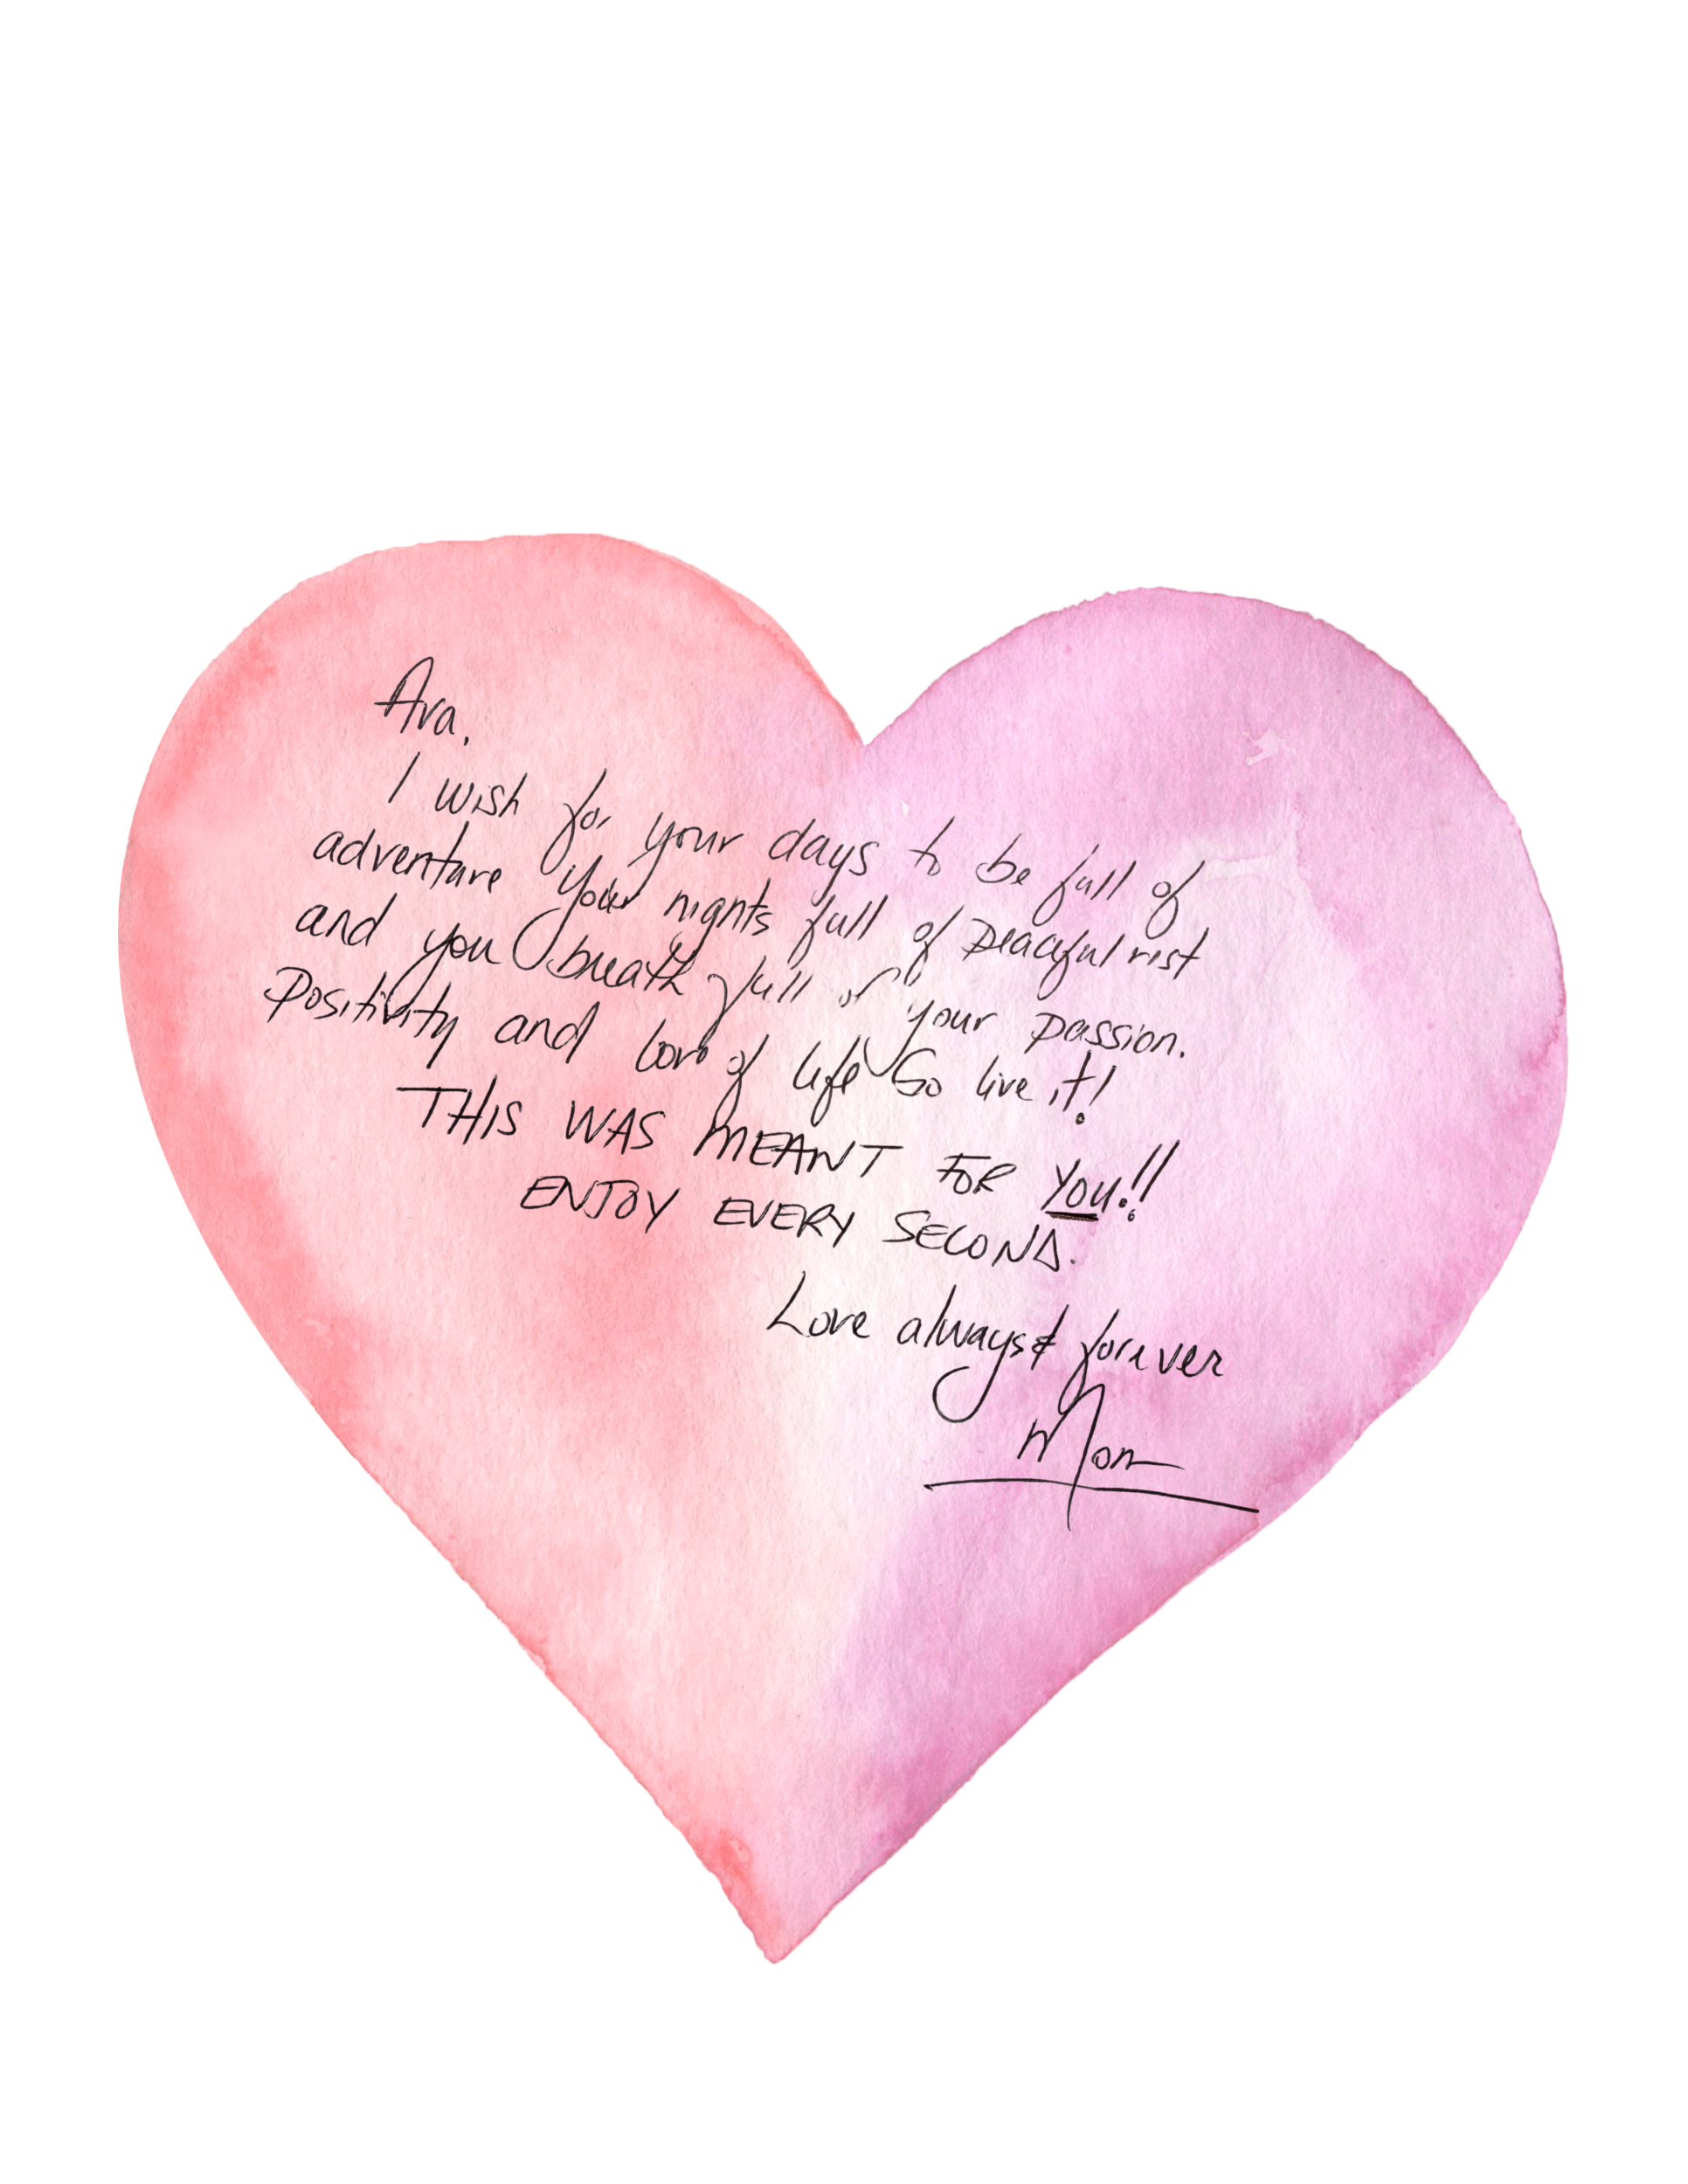 Ava,
I wish for your days to be full of
adventure your nights full of peaceful rest
and you breath full of your passion.
Positivity and love of life Go live it!
THIS WAS MEANT FOR YOU!!
ENJOY EVERY SECOND.
Love always & forever
Mom